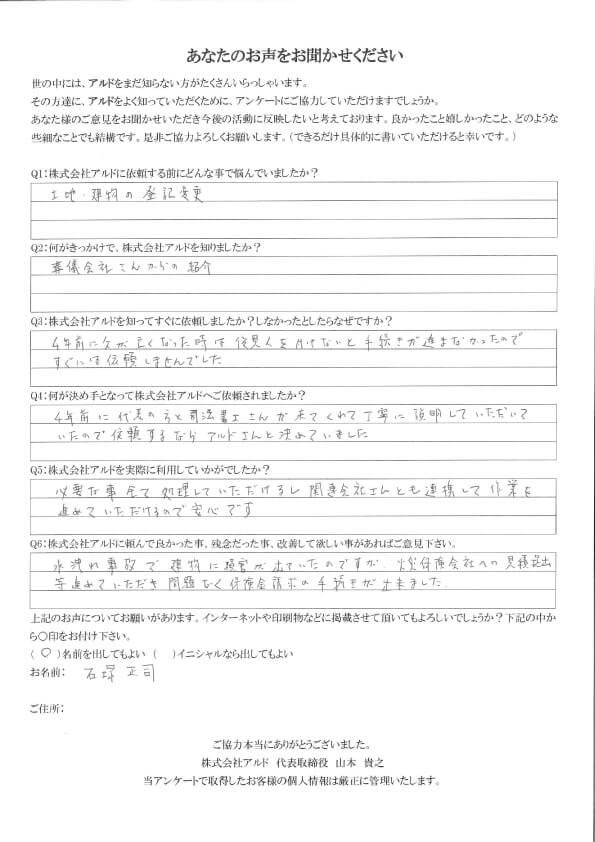 あなたのお声をお聞かせください
世の中には、アルドをまだ知らない方がたくさんいらっしゃいます。
その方達に、アルドをよく知っていただくために、アンケートにご協力していただけますでしょうか。
あなた様のご意見をお聞かせいただき今後の活動に反映したいと考えております。良かったこと嬉しかったこと、どのような
些細なことでも結構です。是非ご協力よろしくお願いします。(できるだけ具体的に書いていただけると幸いです。)
Q1:株式会社アルドに依頼する前にどんな事で悩んでいましたか?
土地・建物の登記変更
Q2:何がきっかけで、株式会社アルドを知りましたか?
葬儀会社さんからの紹介
Q3:株式会社アルドを知ってすぐに依頼しましたか?しなかったとしたらなぜですか?
4年前に父が亡くなった時は後見人を付けないと手続きが進まなかったので
すぐには依頼しませんでした
Q4:何が決め手となって株式会社アルドへご依頼されましたか?
4年前に代表の方と司法書士さんが来てくれて丁寧に説明していただいて
いたので依頼するならアルドさんと決めていました
Q5:株式会社アルドを実際に利用していかがでしたか?
必要な事全て処理していただけるし関連会社さんとも連携して作業を
進めていただけるので安心です
Q6:株式会社アルドに頼んで良かった事、残念だった事、改善して欲しい事があればご意見下さい。
水漏れ事故で建物に損害が出ていたのですが、火災保険会社への見積提出
等進めていただき問題なく保険金請求の手続きが出来ました.
上記のお声についてお願いがあります。インターネットや印刷物などに掲載させて頂いてもよろしいでしょうか?下記の中か
ら〇印をお付け下さい。
(○)名前を出してもよい ( )イニシャルなら出してもよい
お名前: 石塚 正司
ご住所:
ご協力本当にありがとうございました。
株式会社アルド 代表取締役 山本 貴之
当アンケートで取得したお客様の個人情報は厳正に管理いたします。